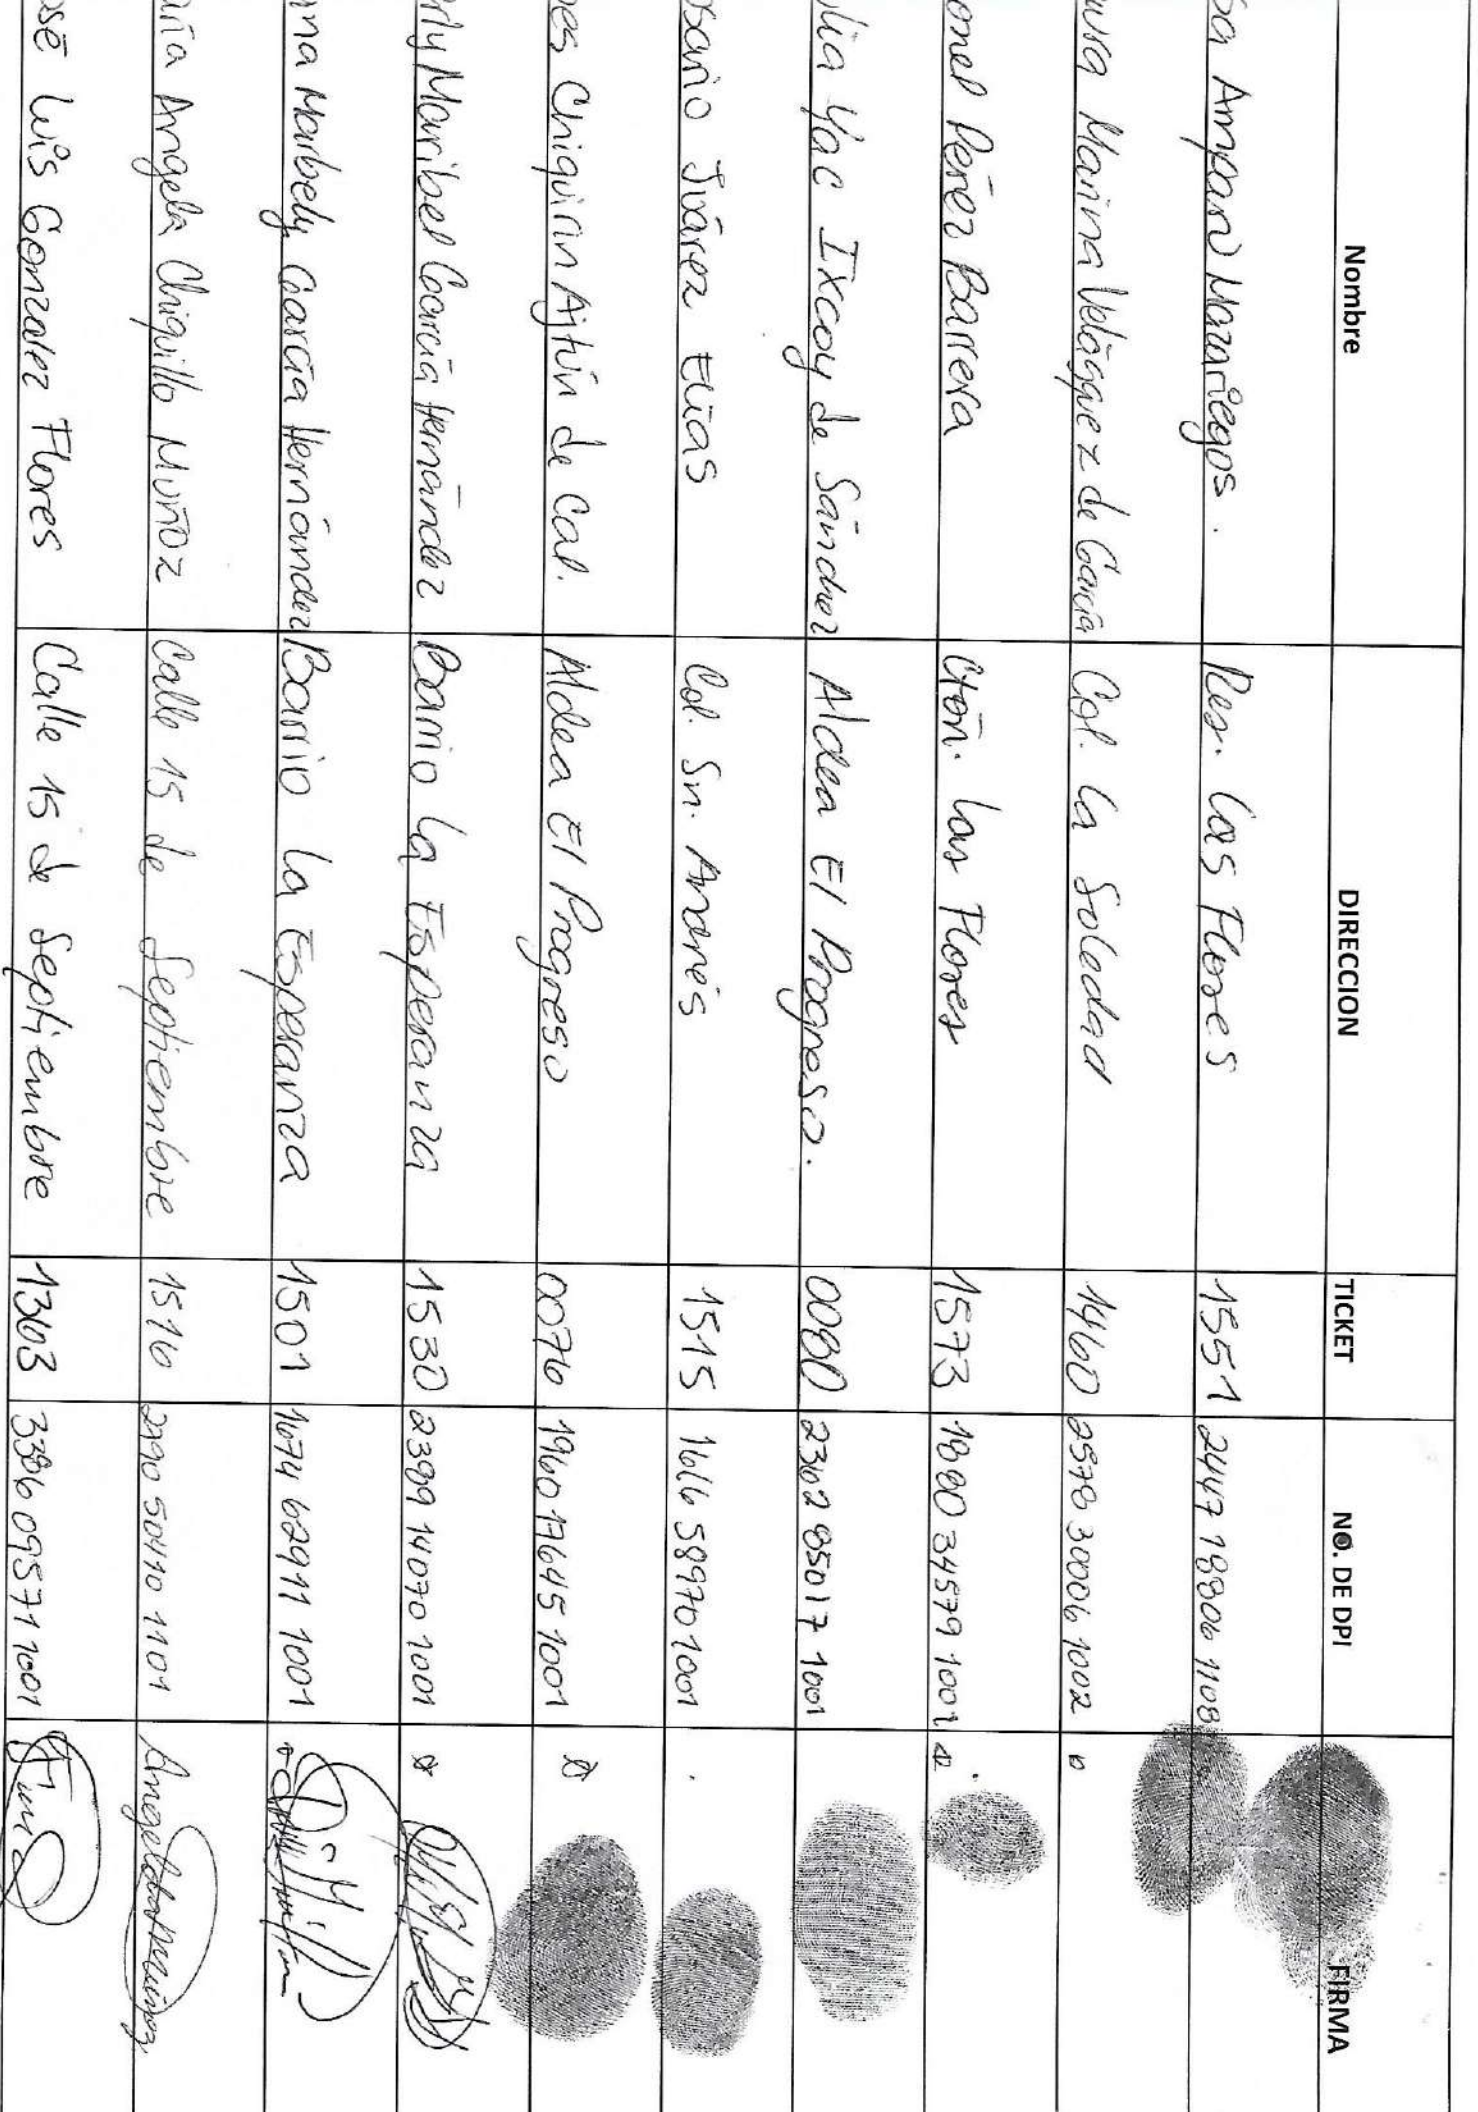 Nombre DIRECCION TICKET NO. DE DPI FIRMA
sa Amparo Mazariegos. Res. Las Flores 1551 2447 18806 1108
aura Marina Velásquez de García Col. La Soledad 1460 2578 30006 1002
onel Pérez Barrera Ctón. Las Flores 1573 1880 34579 1001
ulia Yac Ixcoy de Sánchez Aldea El Progreso. 0080 2362 85017 1001
osario Juárez Elías Col. Sn. Andrés 1515 1616 58970 1001
es Chiquirin Ajtún de Cal. Aldea El Progreso 0076 1960 17645 1001
rly Maribel García Hernández Barrio La Esperanza 1530 2389 14070 1001
na Marbely García Hernández Barrio La Esperanza 1501 1674 62911 1001
ría Angela Chiquillo Muñoz Calle 15 de Septiembre 1516 2190 50410 1101
osé Luis Gonzalez Flores Calle 15 de Septiembre 1363 3386 09571 1001